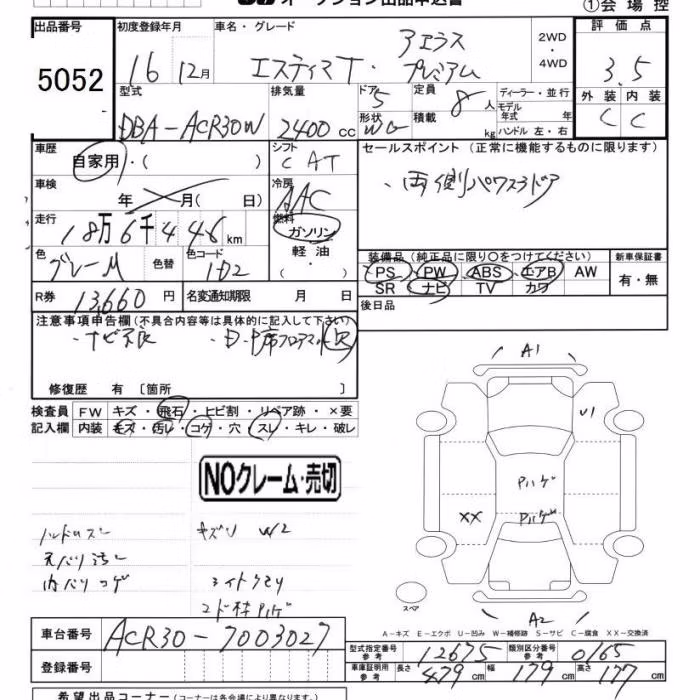 オークション出品申込書 ①会場控
出品番号 初度登録年月 車名・グレード 評価点
5052 16 12月 エスティマT・アエラス プレミアム 2WD・4WD 3.5
型式 排気量 ドア 5 定員 8 人 ディーラー・並行 外装 内装
DBA-ACR30W 2400cc 形状 WG 積載 kg モデル年式 年 C C
ハンドル 左・右
車歴 自家用・( ) シフト CAT セールスポイント (正常に機能するものに限ります)
車検 年 月( 日) 冷房 AAC ・両側パワスラドア
走行 18万6千446km 燃料 ガソリン
軽油
・
( )
色 グレーM 色替 色コード 1D2 装備品 (純正品に限り○をつけてください) 新車保証書
PS PW ABS エアB AW 有・無
SR ナビ TV カワ
R券 13,660円 名変通知期限 月 日 後日品
注意事項申告欄 (不具合内容等は具体的に記入して下さい)
・ナビ不良 欠
修復歴 有 [箇所 ]
検査員 FW キズ・飛石・ヒビ割・リペア跡・×要
記入欄 内装 キズ・汚レ・コゲ・穴・スレ・キレ・破レ
NOクレーム・売切
ハンドルスレ キズ W2
天バリ汚レ
内バリコゲ ライトクモリ
A1
U1
Pハゲ
XX Pハゲ
スペア A2
A－キズ E－エクボ U－凹み W－補修跡 S－サビ C－腐食 XX－交換済
車台番号 ACR30-7003027
型式指定番号 参考 12675 類別区分番号 参考 0165
登録番号 車庫証明用 参考 長さ 479cm 幅 179cm 高さ 177cm
希望出品コーナー (コーナーは各会場により異なります。)